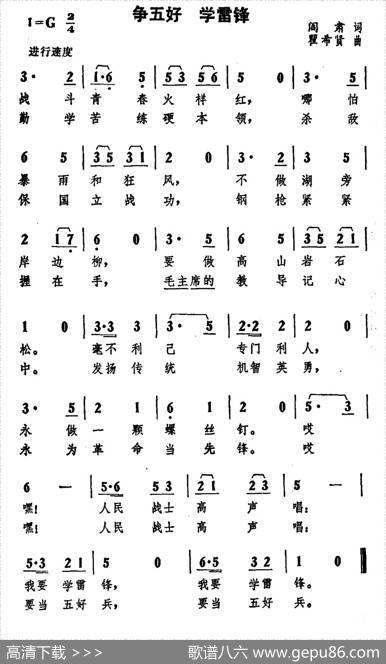 争五好 学雷锋
1=G 2/4
阎肃 词
瞿希贤 曲
进行速度
3· 2 | 1·6 5 | 53 56 | 5 0 | 3· 2 |
战 斗 青 春 火 样 红， 哪 怕
勤 学 苦 练 硬 本 领， 杀 敌
6 5 | 35 31 | 2 0 | 3· 2 | 5 5 |
暴 雨 和 狂 风， 不 做 湖 旁
保 国 立 战 功， 钢 枪 紧 紧
2 17 | 6 0 | 3· 5 | 6 5 | 35 21 |
岸 边 柳， 要 做 高 山 岩 石
握 在 手， 毛主席的 教 导 记 心
1 0 | 3·3 2 | 3· 5 | 2·2 2 | 1 0 |
松。 毫不 利 己 专门 利 人，
中。 发扬 传 统 机智 英 勇，
3· 5 | 2 1 | 6 1 | 2 0 | 5· 3 |
永 做 一 颗 螺 丝 钉。 哎
永 为 革 命 当 先 锋。 哎
6 — | 5·6 53 | 21 23 | 5 — |
嘿！ 人民 战士 高 声 唱：
嘿！ 人民 战士 高 声 唱：
5·3 21 | 5 0 | 6·5 32 | 1 0 ‖
我要 学雷 锋， 我要 学雷 锋。
要当 五好 兵， 要当 五好 兵。
高清下载 >>> 歌谱八六 www.gepu86.com